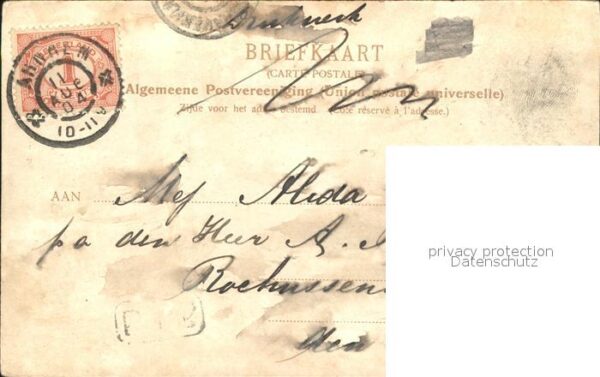 Drukwerk
NEDERLAND
1
ARNHEM
11 AUG 04
10-11
BRIEFKAART
(CARTE POSTALE)
Algemeene Postvereeniging (Union postale universelle)
Zijde voor het adres bestemd (Côté réservé à l'adresse.)
AAN Mej Alida
p/a den Heer A.
Rochussen
den
privacy protection
Datenschutz